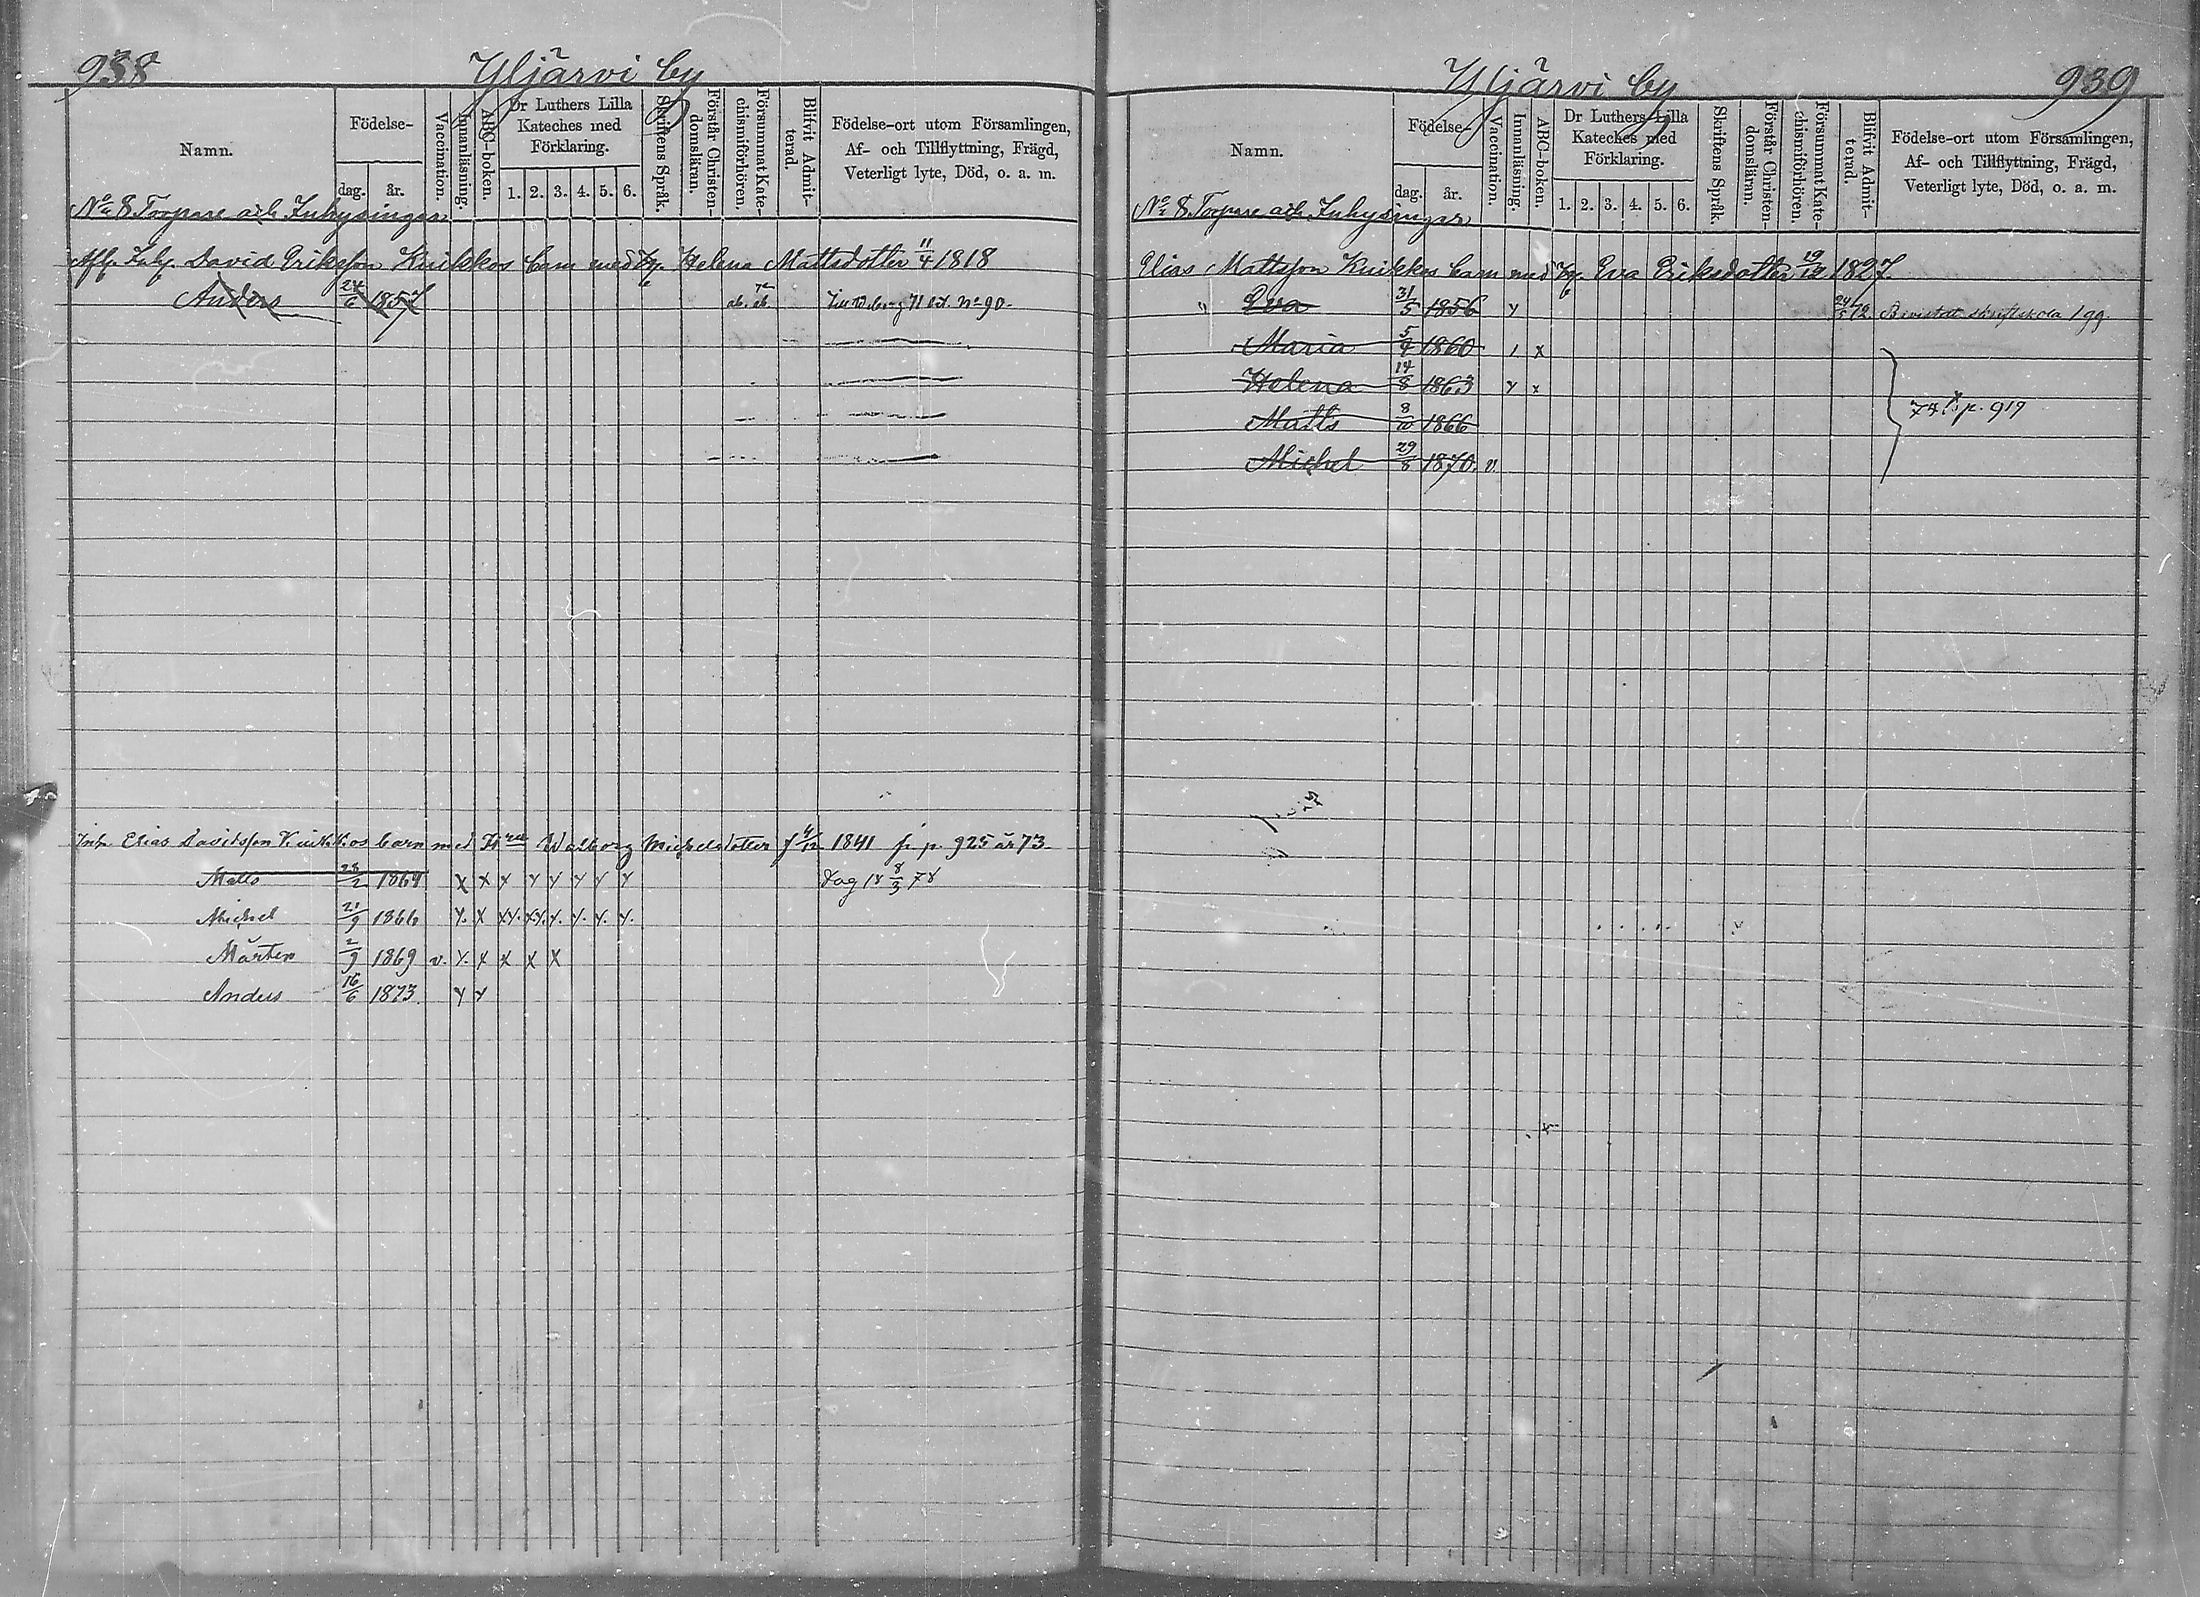 938
Yljärvi by
Namn.
Födelse-
dag.
år.
Vaccination.
Innanläsning.
ABC-boken.
Dr Luthers Lilla
Kateches med
Förklaring.
1. 2. 3. 4. 5. 6.
Skriftens Språk.
Förstår Christen-
domsläran.
Försummat Kate-
chismiförhören.
Blifvit Admit-
terad.
Födelse-ort utom Församlingen,
Af- och Tillflyttning, Frägd,
Veterligt lyte, Död, o. a. m.
No 8 Torpare och Inhysingar
Afl. Inh. David Eriksson Kuikkos barn med Helena Mattsdotter 11/4 1818
Anders 24/6 1857 ab. ab. Till Wiborg 71 bet. No 90.
Inh. Elias Davidsson Kuikkos barn med Walborg Michelsdotter f 4/12 1841 fr. p. 925 år 73
Matts 28/2 1864 x x x x x x x x Dog 18 8/3 78
Michel 21/9 1866 x. x xx. xx. x. x. x. x.
Mårten 2/9 1869 v. x. x x x x
Anders 16/6 1873. x x
939
Yljärvi by
Namn.
Födelse-
dag.
år.
Vaccination.
Innanläsning.
ABC-boken.
Dr Luthers Lilla
Kateches med
Förklaring.
1. 2. 3. 4. 5. 6.
Skriftens Språk.
Förstår Christen-
domsläran.
Försummat Kate-
chismiförhören.
Blifvit Admit-
terad.
Födelse-ort utom Församlingen,
Af- och Tillflyttning, Frägd,
Veterligt lyte, Död, o. a. m.
No 8 Torpare och Inhysingar
Elias Mattsson Kuikkos barn med Eva Eriksdotter 19/12 1827.
" Eva 31/5 1856 x 24/5 72. Bevistat skriftskola 1 gg.
Maria 5/4 1860 1 x
Helena 14/8 1863 x x
Matts 8/10 1866 74 p. 917
Michel 29/8 1870. v.